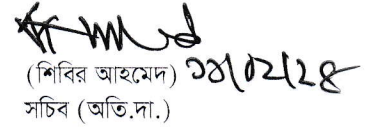 (শিবির আহমেদ) ১১/০২/২৪
সচিব (অতি.দা.)